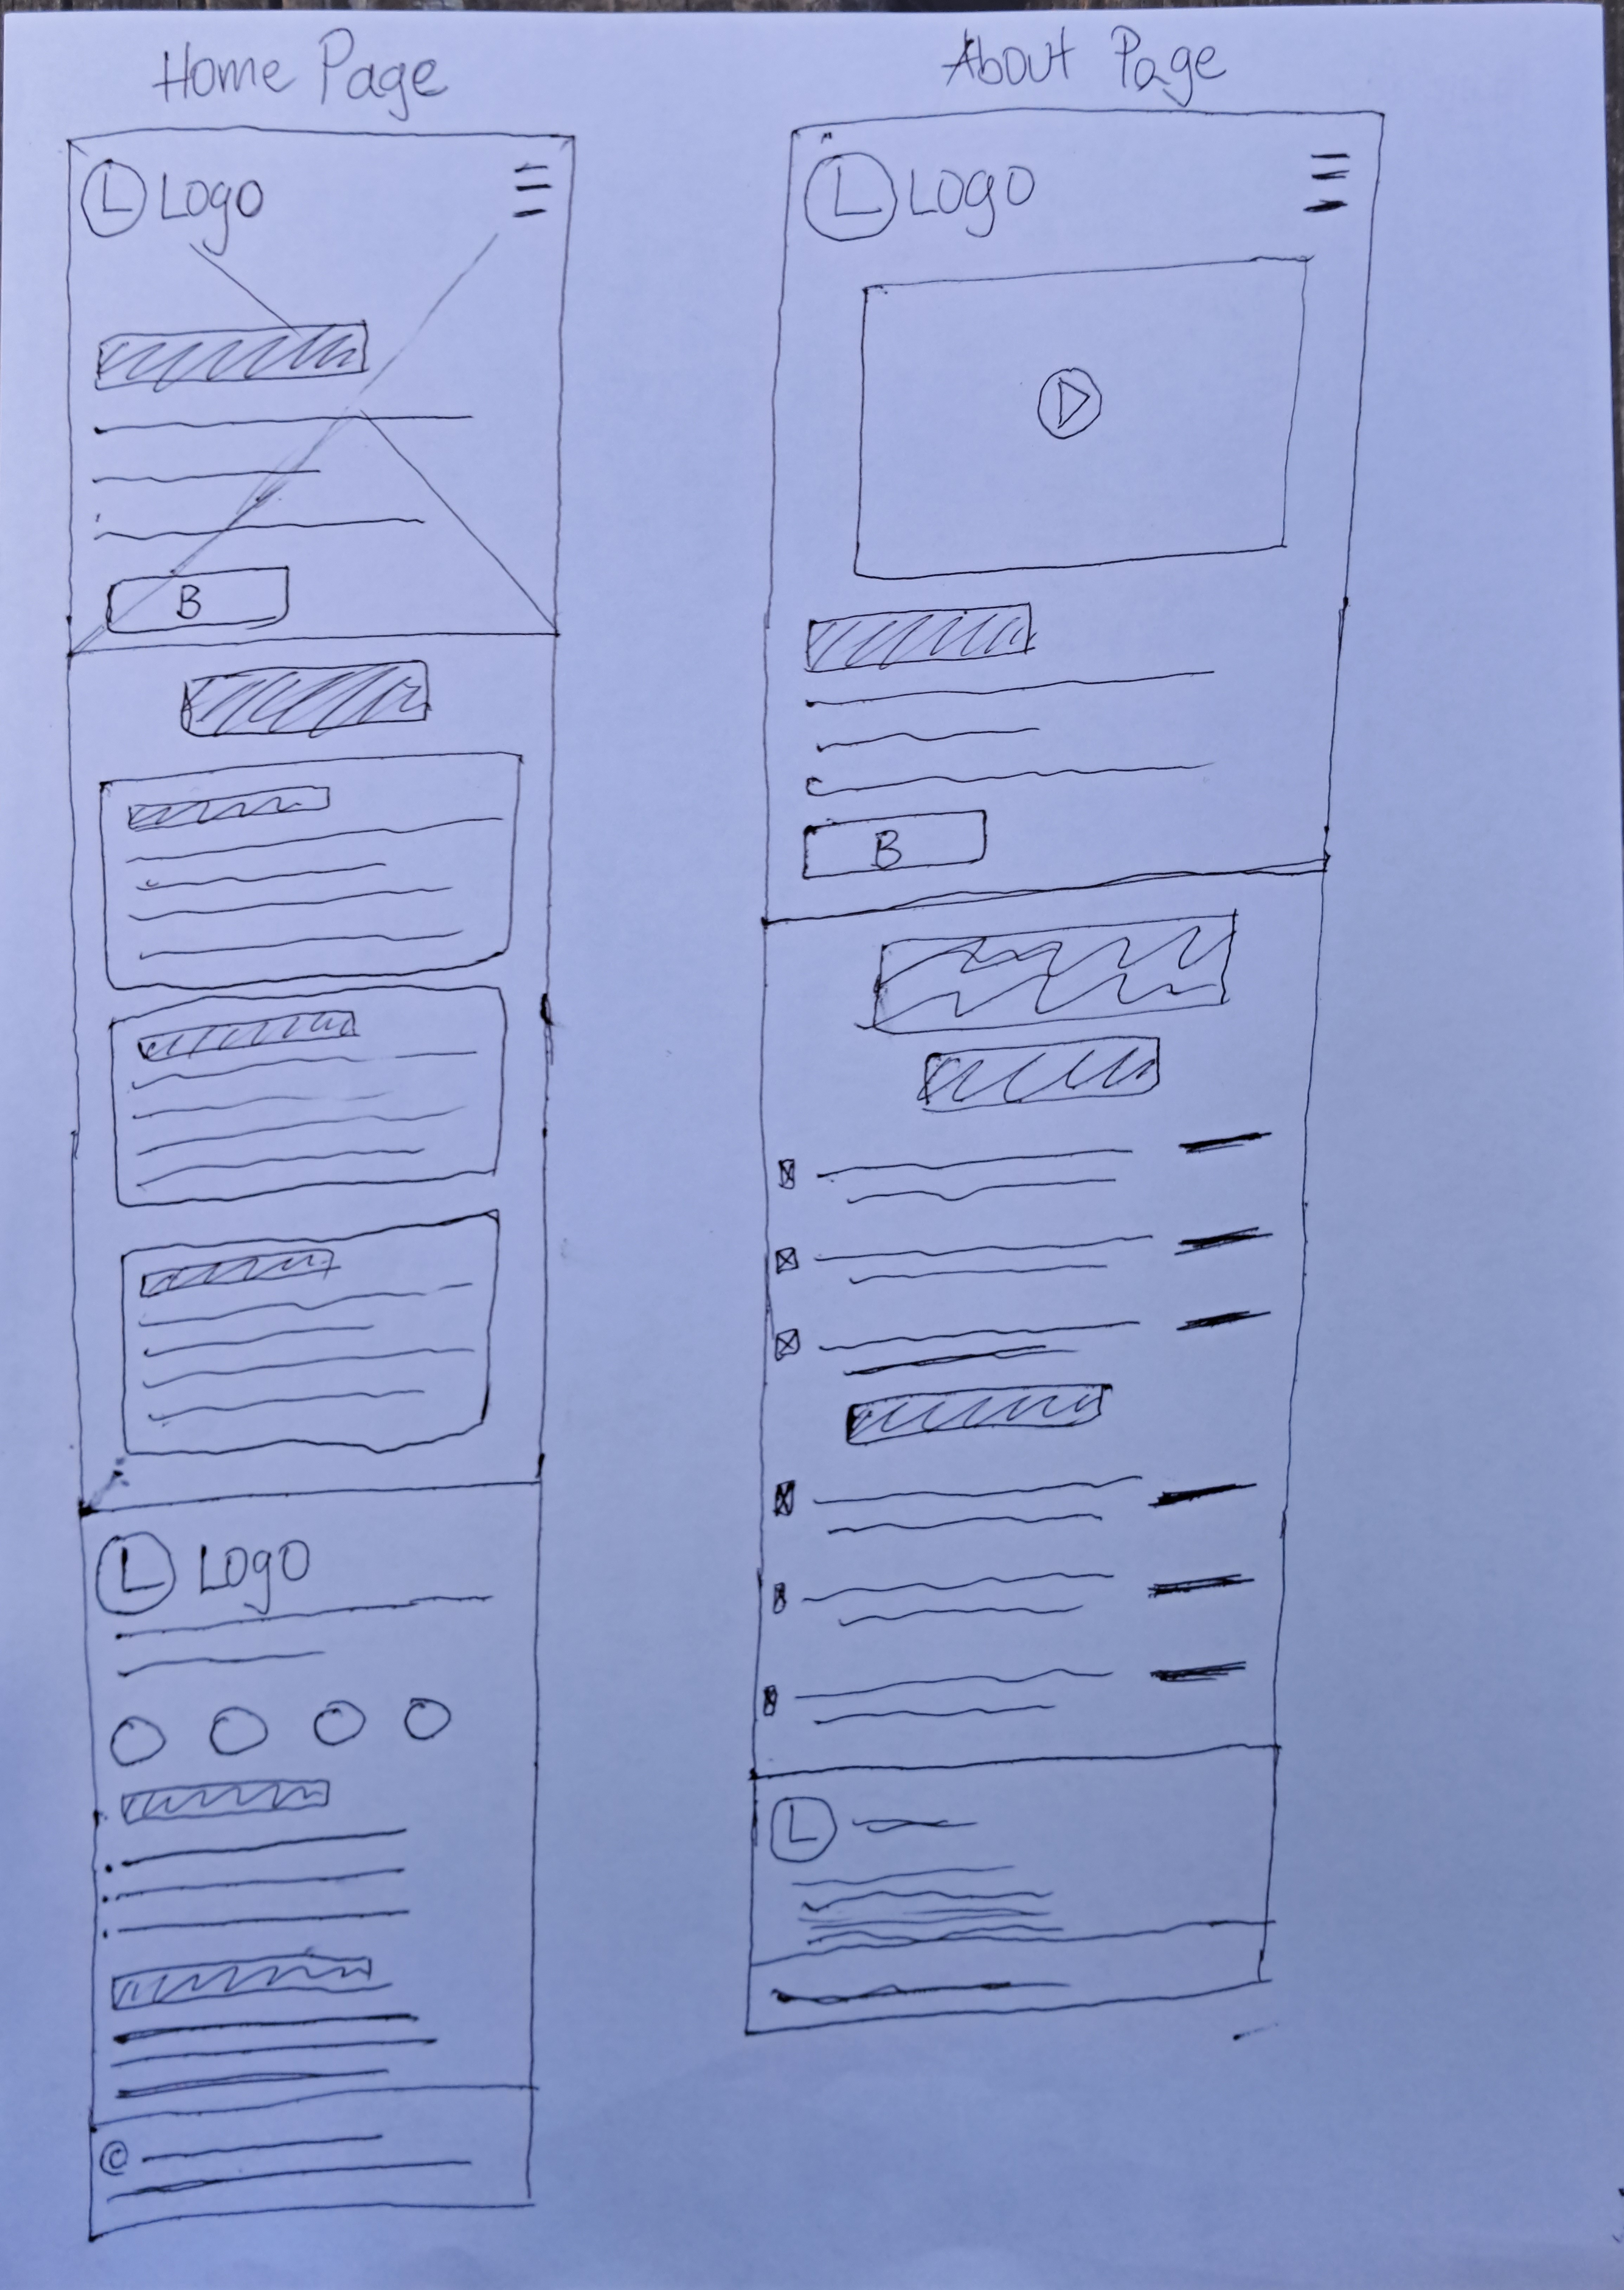 Home Page
L Logo
B
L Logo
©
About Page
L Logo
B
L